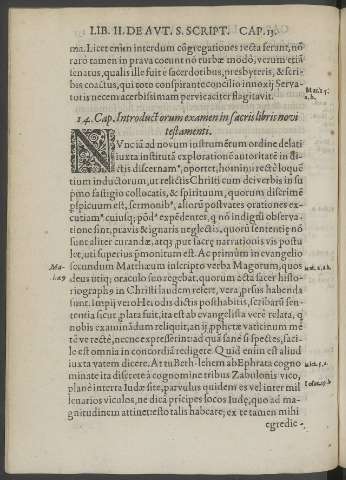 LIB. II. DE AVT. S. SCRIPT. CAP. 13.
ma. Licet enim interdum cõgregationes recta ferant, nõ
raro tamen in prava coeunt nõ turbæ modò, verum etiã
senatus, qualis ille fuit e sacerdotibus, presbyteris, & scri-
bis coactus, qui toto conspirante concilio innoxij Serva-
toris necem acerbissimam pervicaciter flagitavit.
14. Cap. Introductorum examen in sacris libris novi
testamenti.
NVnc iã ad novum instrumentum ordine delati
iuxta institutã explorationẽ autoritatẽ in
dictis discernam⁹, oportet, homini rectè loquẽ
tium inductorum, ut relictis Christi cum dei verbis in su
pmo fastigio collocatis, & spirituum, quorum discrimẽ
pspicuum est, sermonib⁹, alioru postvates orationes ex-
cutiam⁹ cuiusq; põd⁹ expẽdentes, q nõ indigni observa-
tione sint, pravis & ignaris neglectis, quorũ sententiẹ nõ
sunt aliter curandæ, atq;, put sacrę narrationis vis postu
let, uti superius pmonitum est. Ac primùm in evangelio
secundum Matthæum inscripto verba Magorum, quos
deus utiq; oraculo suo regebat, quorum acta sacer histo-
riographo in Christi laudem refere, vera, prsus habenda
sunt. Impij vero Herodis dictis posthabitis, scribarũ sen-
tentia sicut, plata fuit, ita est ab evangelista verè relata, q
nobis examinãdum reliquit, an ij, pphetæ vaticinum mẽ
tè ve rectè, necne expresserint ad quã sanè si spectes, faci-
le est omnia in concordiã redigere. Quid enim est aliud
iuxta vatem dicere, At tu Beth-lehem ab Ephrata cogno
minate ita discretè à cognomine tribus Zabulonis vico,
planè interra Iudæ site, parvulus quidem es vel inter mil
lenarios viculos, ne dicã prĩcipes socos Iudę, quo ad ma-
gnitudinem attinet esto talis habeare; ex te tamen mihi
egredie-
Mat. 2. a. b.